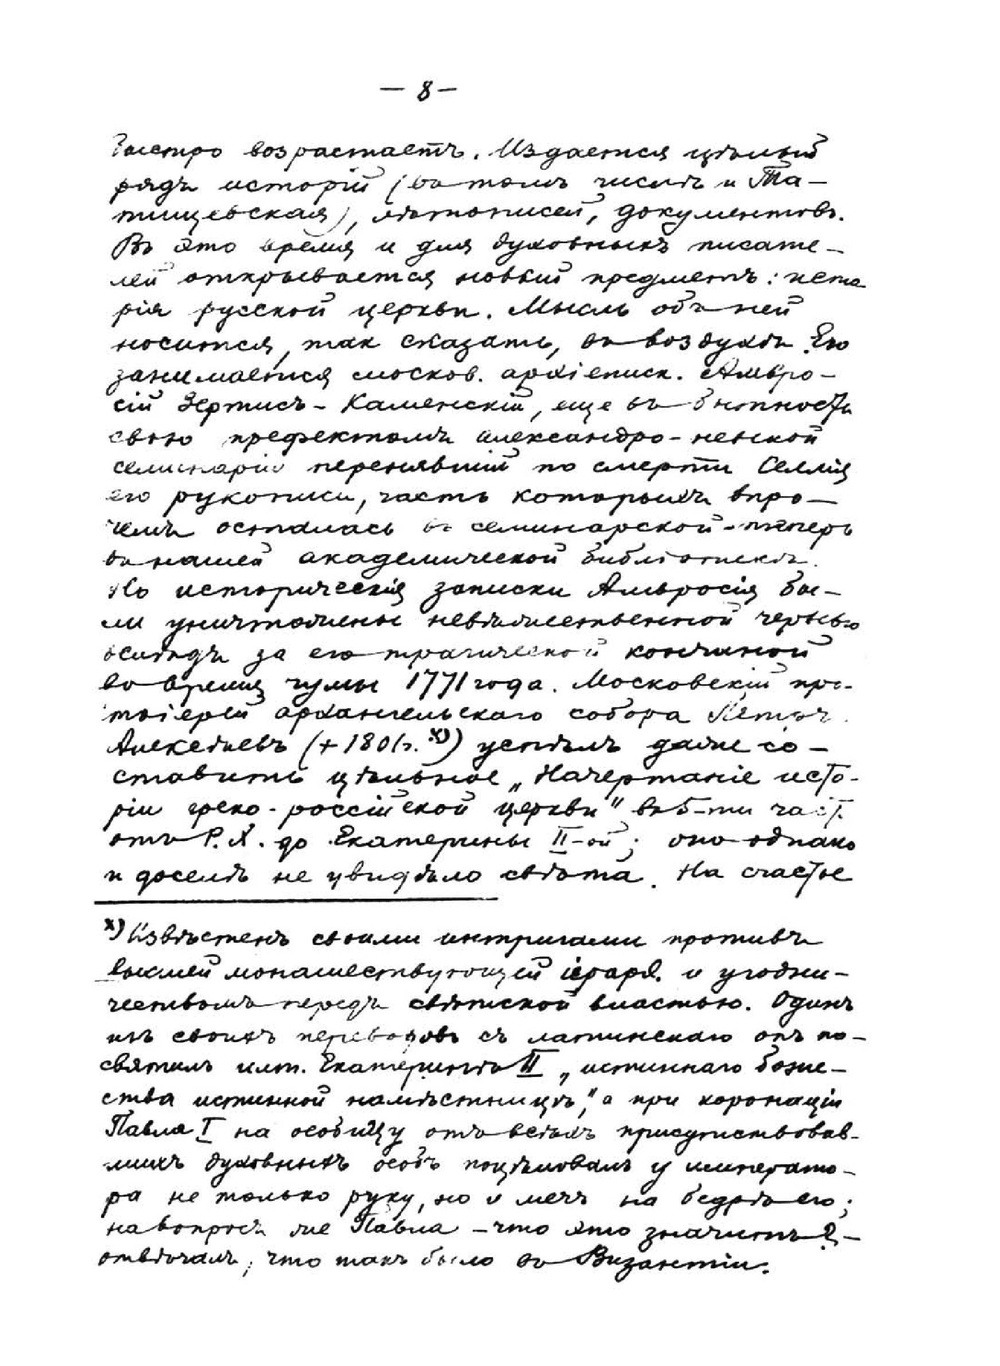 — 8 —
быстро возрастаетъ. Издается цѣлый
рядъ исторій (въ томъ числѣ и Та-
тищевская), лѣтописей, документовъ.
Въ это время и для духовныхъ писате-
лей открывается новый предметъ: исто
рія русской церкви. Мысль объ ней
носится, так сказать, въ воздухѣ. Ею
занимается москов. архіеписк. Амвро-
сій Зертисъ-Каменскій, еще въ бытность
свою префектомъ александро-невской
семинаріи перенявшій по смерти Селлія
его рукописи, часть которыхъ впро-
чемъ осталась въ семинарской - теперь
въ нашей академической библіотекѣ.
Но историческія записки Амвросія бы-
ли уничтожены невѣжественной чернью
вслѣдъ за его трагической кончиной
во время чумы 1771 года. Московскій про-
тоіерей архангельскаго собора Петръ
Алексѣевъ (+ 1801г. х)) успѣлъ даже со-
ставить цѣльное „Начертаніе исто-
ріи греко-россійской церкви" въ 5-ти част.
отъ Р. Х. до Екатерины II-ой; оно однако
и доселѣ не увидѣло свѣта. На счастье
х) Извѣстенъ своими интригами противъ
высшей монашествующей іерарх. и угодни-
чествомъ передъ свѣтской властью. Одинъ
изъ своихъ переводовъ съ латинскаго онъ по-
святилъ имп. Екатеринѣ II „истиннаго боже-
ства истинной намѣстницѣ", а при коронаціи
Павла I на особицу отъ всѣхъ присутствовав-
шихъ духовныхъ особъ поцѣловалъ у императо-
ра не только руку, но и мечъ на бедрѣ его;
на вопросъ же Павла - что это значитъ? -
отвѣчалъ, что такъ было въ Византіи.